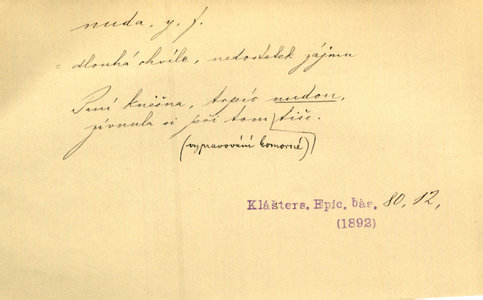 nuda, y, f.
= dlouhá chvíle, nedostatek zájmu
Paní kněžna, trpíc nudou,
zívnula si při tom tiše.
(vypravování komorné)
Klášters. Epic. bás. 80, 12,
(1892)